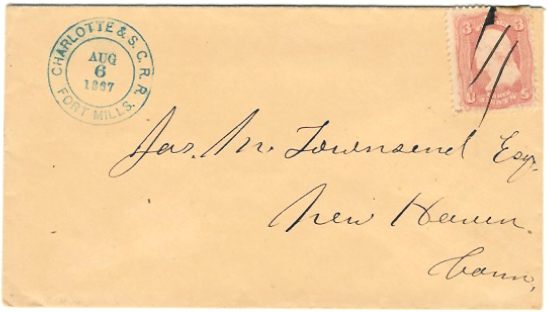 CHARLOTTE & S. C. R. R.
AUG
6
1867
FORT MILLS.
3 3
U S
Jas. M. Townsend Esq.
New Haven.
Conn,